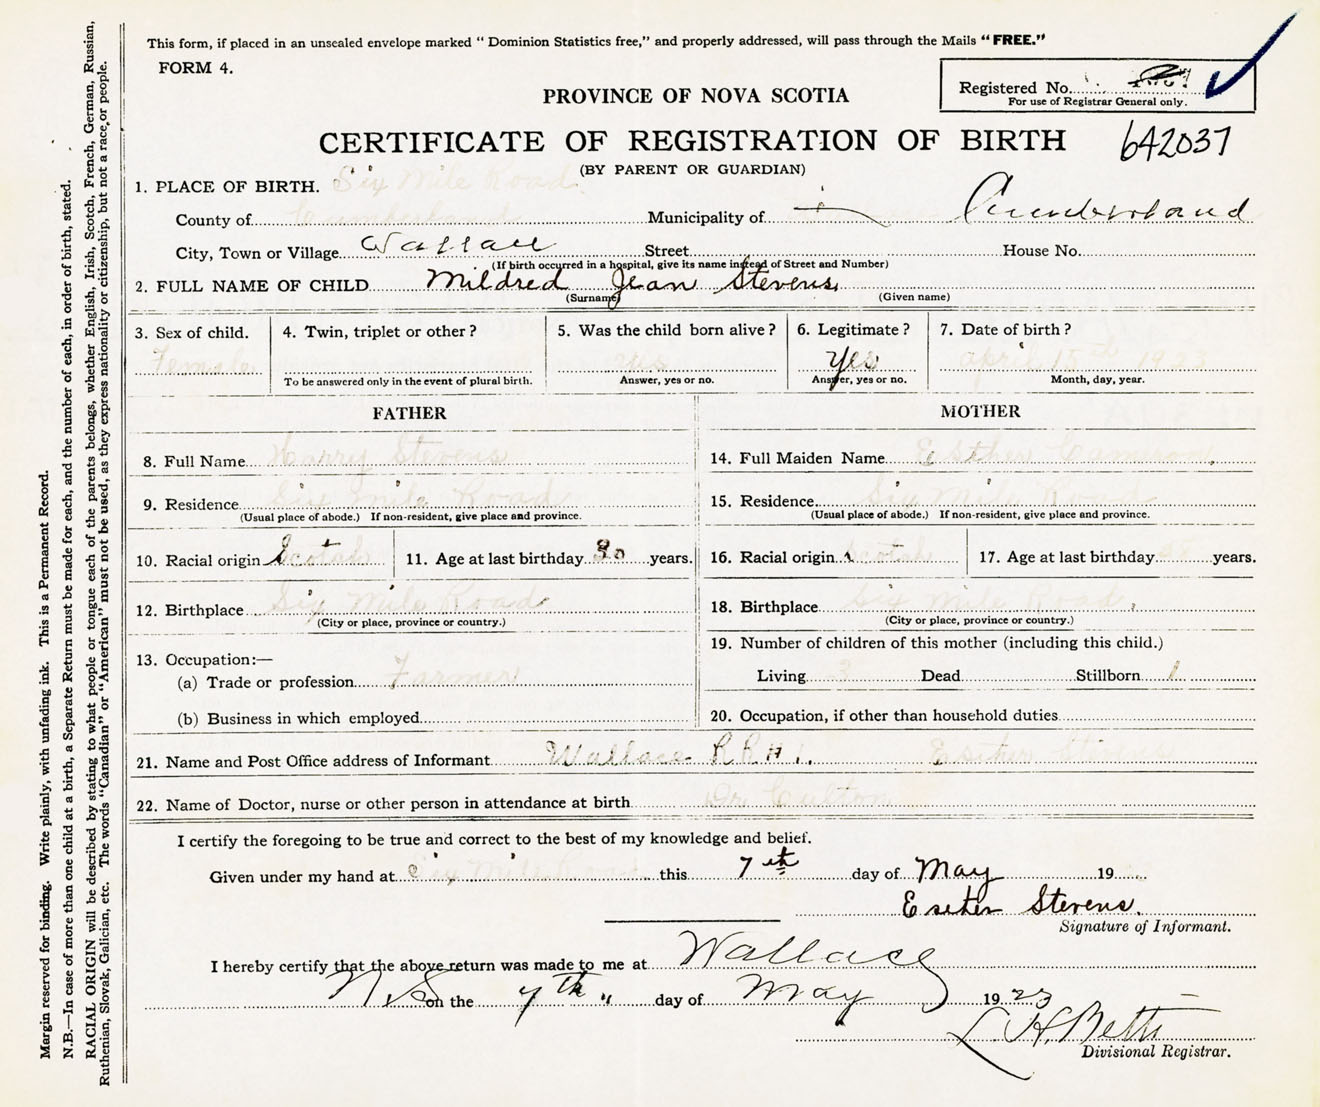 This form, if placed in an unsealed envelope marked " Dominion Statistics free," and properly addressed, will pass through the Mails "FREE."
FORM 4.
Registered No.
For use of Registrar General only.
PROVINCE OF NOVA SCOTIA
CERTIFICATE OF REGISTRATION OF BIRTH
642037
(BY PARENT OR GUARDIAN)
1. PLACE OF BIRTH. Six Mile Road
County of Cumberland Municipality of Cumberland
City, Town or Village Wallace Street House No.
(If birth occurred in a hospital, give its name instead of Street and Number)
2. FULL NAME OF CHILD Mildred Jean Stevens
(Surname) (Given name)
3. Sex of child. 4. Twin, triplet or other? 5. Was the child born alive? 6. Legitimate? 7. Date of birth?
Female yes Yes april 15th 1923
To be answered only in the event of plural birth. Answer, yes or no. Answer, yes or no. Month, day, year.
FATHER MOTHER
8. Full Name Harry Stevens 14. Full Maiden Name Esether Cameron
9. Residence Six Mile Road 15. Residence Six Mile Road
(Usual place of abode.) If non-resident, give place and province. (Usual place of abode.) If non-resident, give place and province.
10. Racial origin Scotch 11. Age at last birthday 30 years. 16. Racial origin Scotch 17. Age at last birthday years.
12. Birthplace Six Mile Road 18. Birthplace Six Mile Road
(City or place, province or country.) (City or place, province or country.)
13. Occupation:— 19. Number of children of this mother (including this child.)
(a) Trade or profession Farmer Living 3 Dead Stillborn 1
(b) Business in which employed 20. Occupation, if other than household duties
21. Name and Post Office address of Informant Wallace R R # 1. Esether Stevens
22. Name of Doctor, nurse or other person in attendance at birth Dr.
I certify the foregoing to be true and correct to the best of my knowledge and belief.
Given under my hand at Six Mile Road this 7th day of May 19
Esether Stevens.
Signature of Informant.
I hereby certify that the above return was made to me at Wallace
N.S on the 7th " day of May 1923
L H. Betts
Divisional Registrar.
Margin reserved for binding. Write plainly, with unfading ink. This is a Permanent Record.
N.B.—In case of more than one child at a birth, a Separate Return must be made for each, and the number of each, in order of birth, stated.
RACIAL ORIGIN will be described by stating to what people or tongue each of the parents belongs, whether English, Irish, Scotch, French, German, Russian,
Ruthenian, Slovak, Galician, etc. The words "Canadian" or "American" must not be used, as they express nationality or citizenship, but not a race or people.